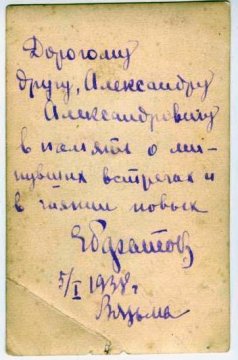 Дорогому
другу, Александру
Александровичу
в память о ми-
нувших встречах и
в чаянии новых
5/I 1938 г
Вязьма